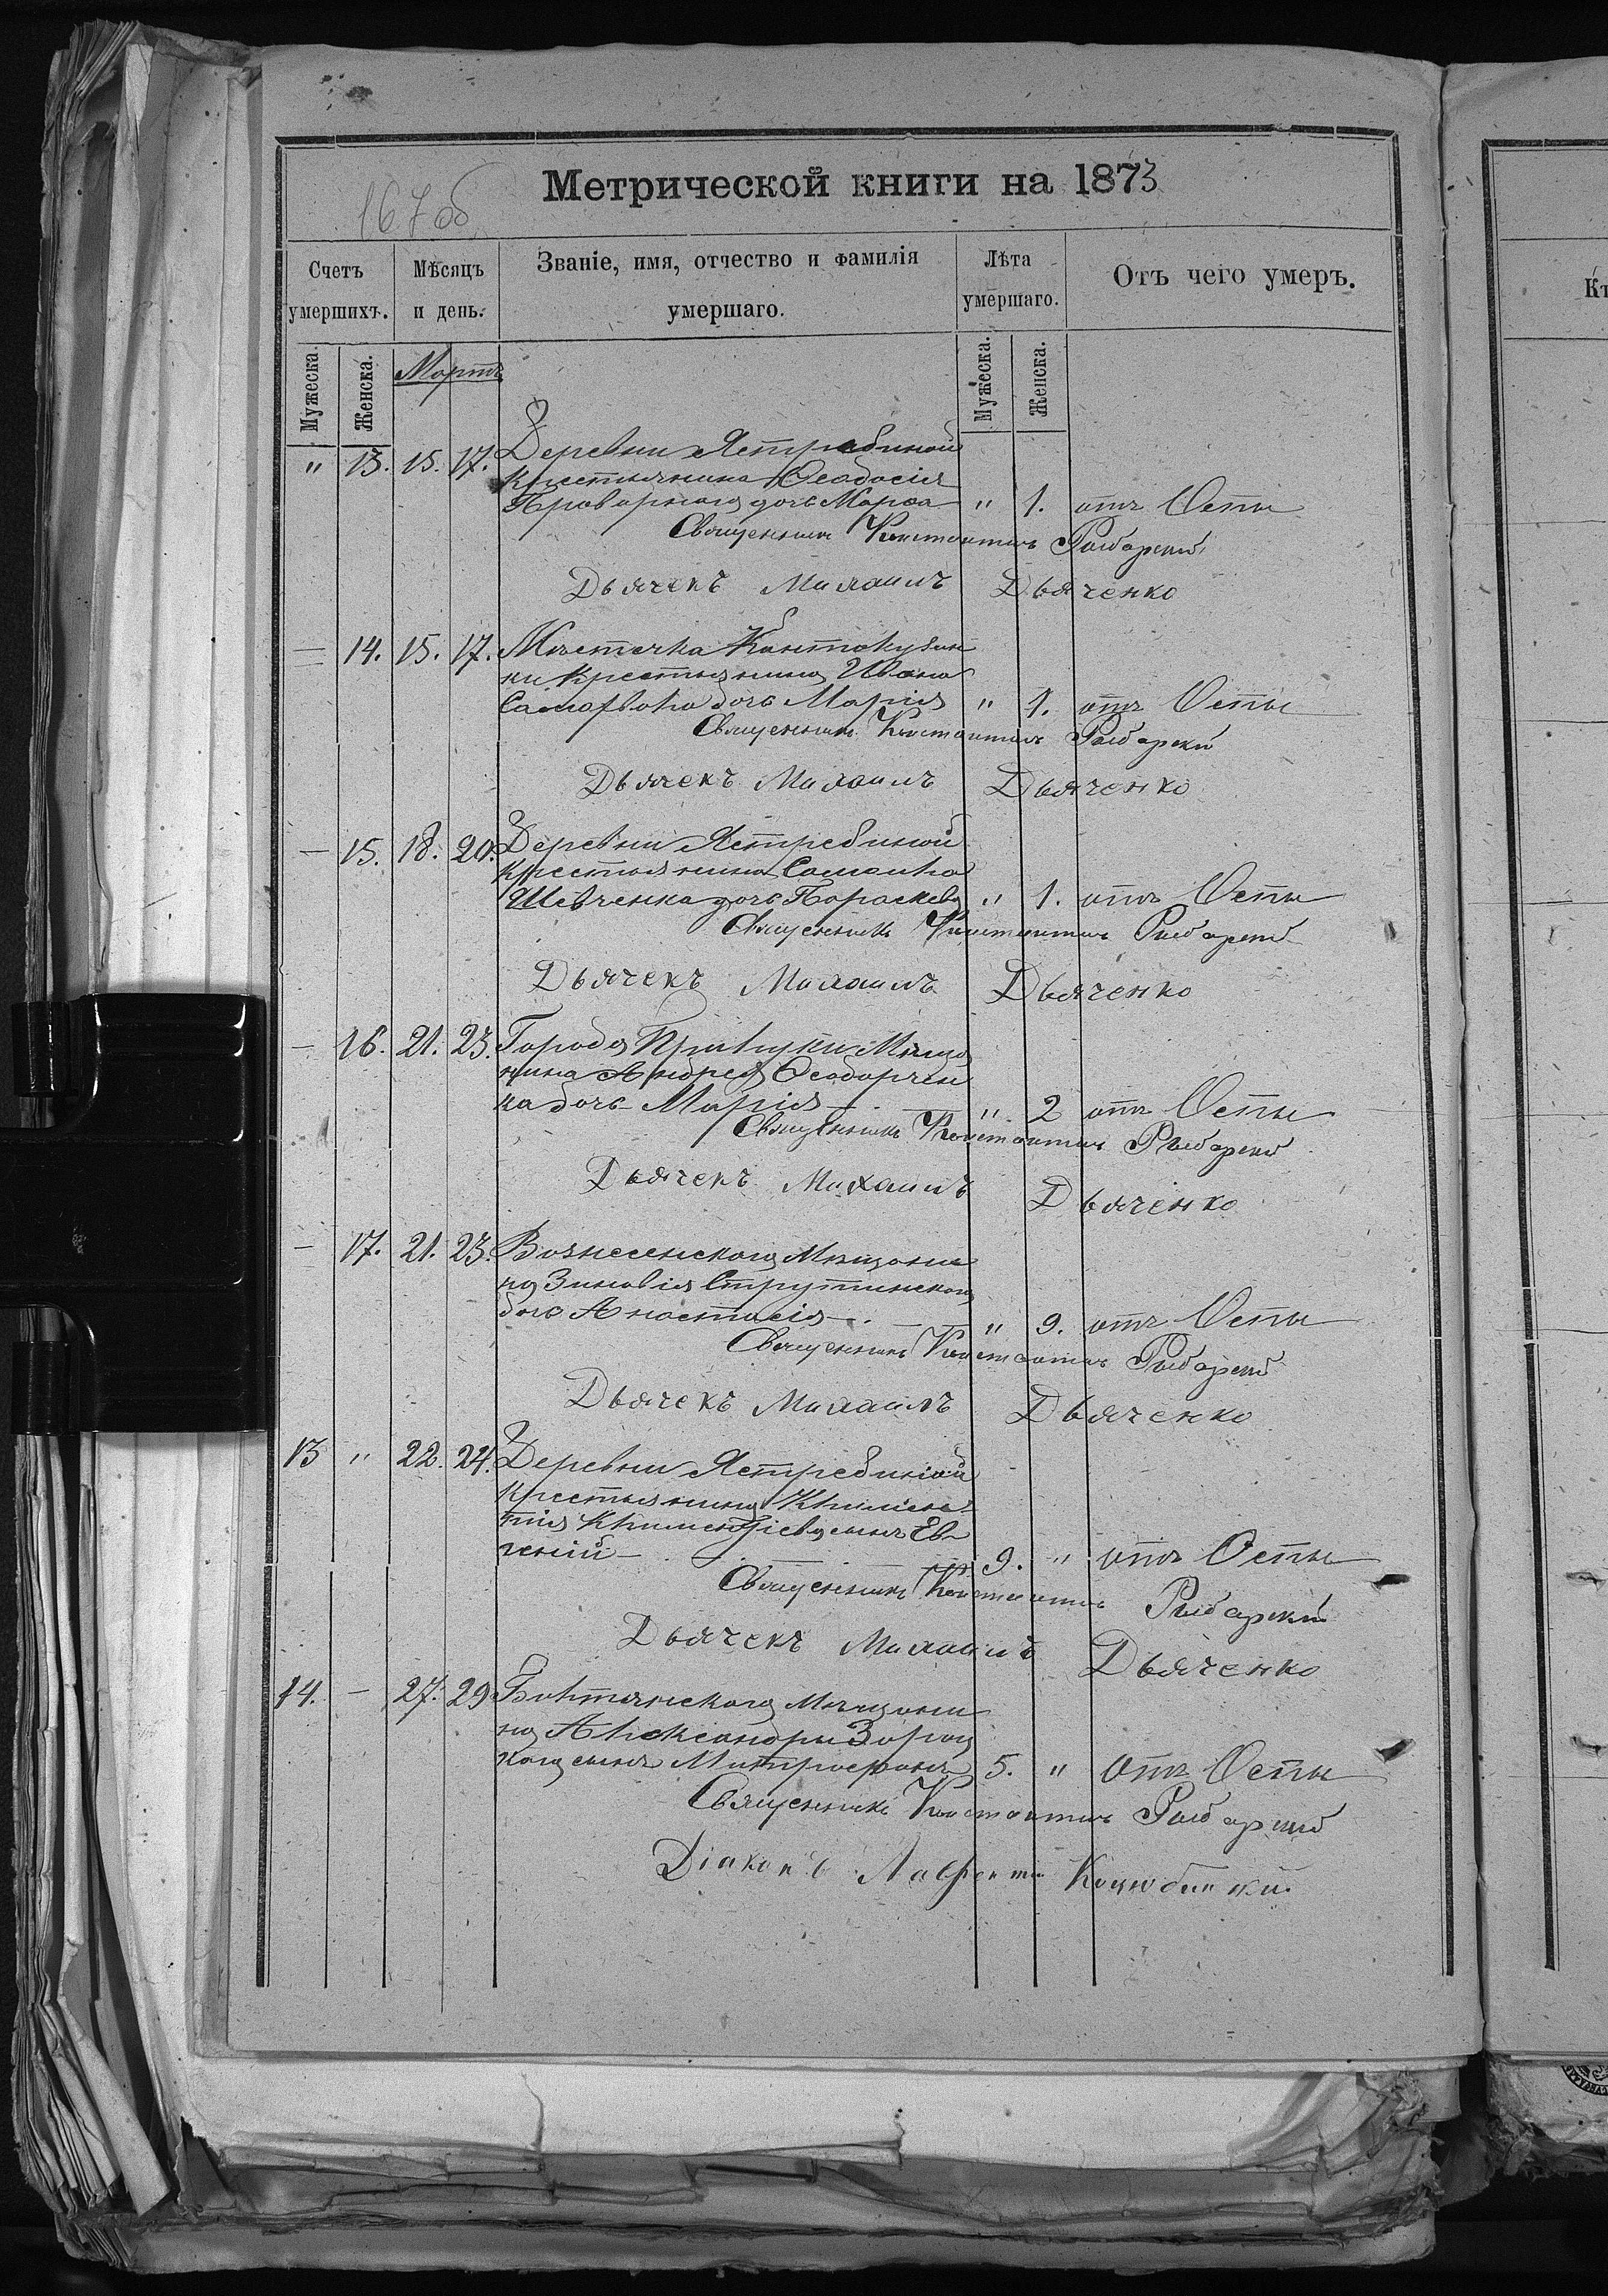 Метрической книги на 1873
167 об
Счетъ умершихъ.
Мѣсяцъ и день.
Званіе, имя, отчество и фамилія умершаго.
Лѣта умершаго.
Отъ чего умеръ.
Мужеска. Женска. Мартъ Мужеска. Женска.
" 13. 15. 17. Деревни Ястребиной
крестьянина Ѳеодосія
дочь Марѳа " 1. отъ Оспы
Священникъ Константинъ
Дьячекъ Михаилъ Дьяченко
— 14. 15. 17. Мѣстечка Кантакузин
ки крестьянина Ивана
дочь Марія " 1. отъ Оспы
Священникъ Константинъ
Дьячекъ Михаилъ Дьяченко
— 15. 18. 20. Деревни Ястребиной
крестьянина
Шевченка дочь Параскева " 1. отъ Оспы
Священникъ Константинъ
Дьячекъ Михаилъ Дьяченко
— 16. 21. 23. Города Прилуки Мѣща
нина Андрея Ѳеодорчен
ка дочь Марія — " 2 отъ Оспы
Священникъ Константинъ
Дьячекъ Михаилъ Дьяченко
— 17. 21. 23. Вознесенскаго Мѣщани
на Зиновія Струтинскаго
дочь Анастасія — " 9. отъ Оспы
Священникъ Константинъ
Дьячекъ Михаилъ Дьяченко
13 " 22. 24. Деревни Ястребиной
крестьянина Климен
тія Климентіева сынъ Ев
геній — 9. " отъ Оспы
Священникъ Константинъ
Дьячекъ Михаилъ Дьяченко
14. — 27. 29 Мѣщани
на Александра
каго сынъ Митрофанъ 5. " отъ Оспы
Священникъ Константинъ
Діаконъ Коцюбинскій